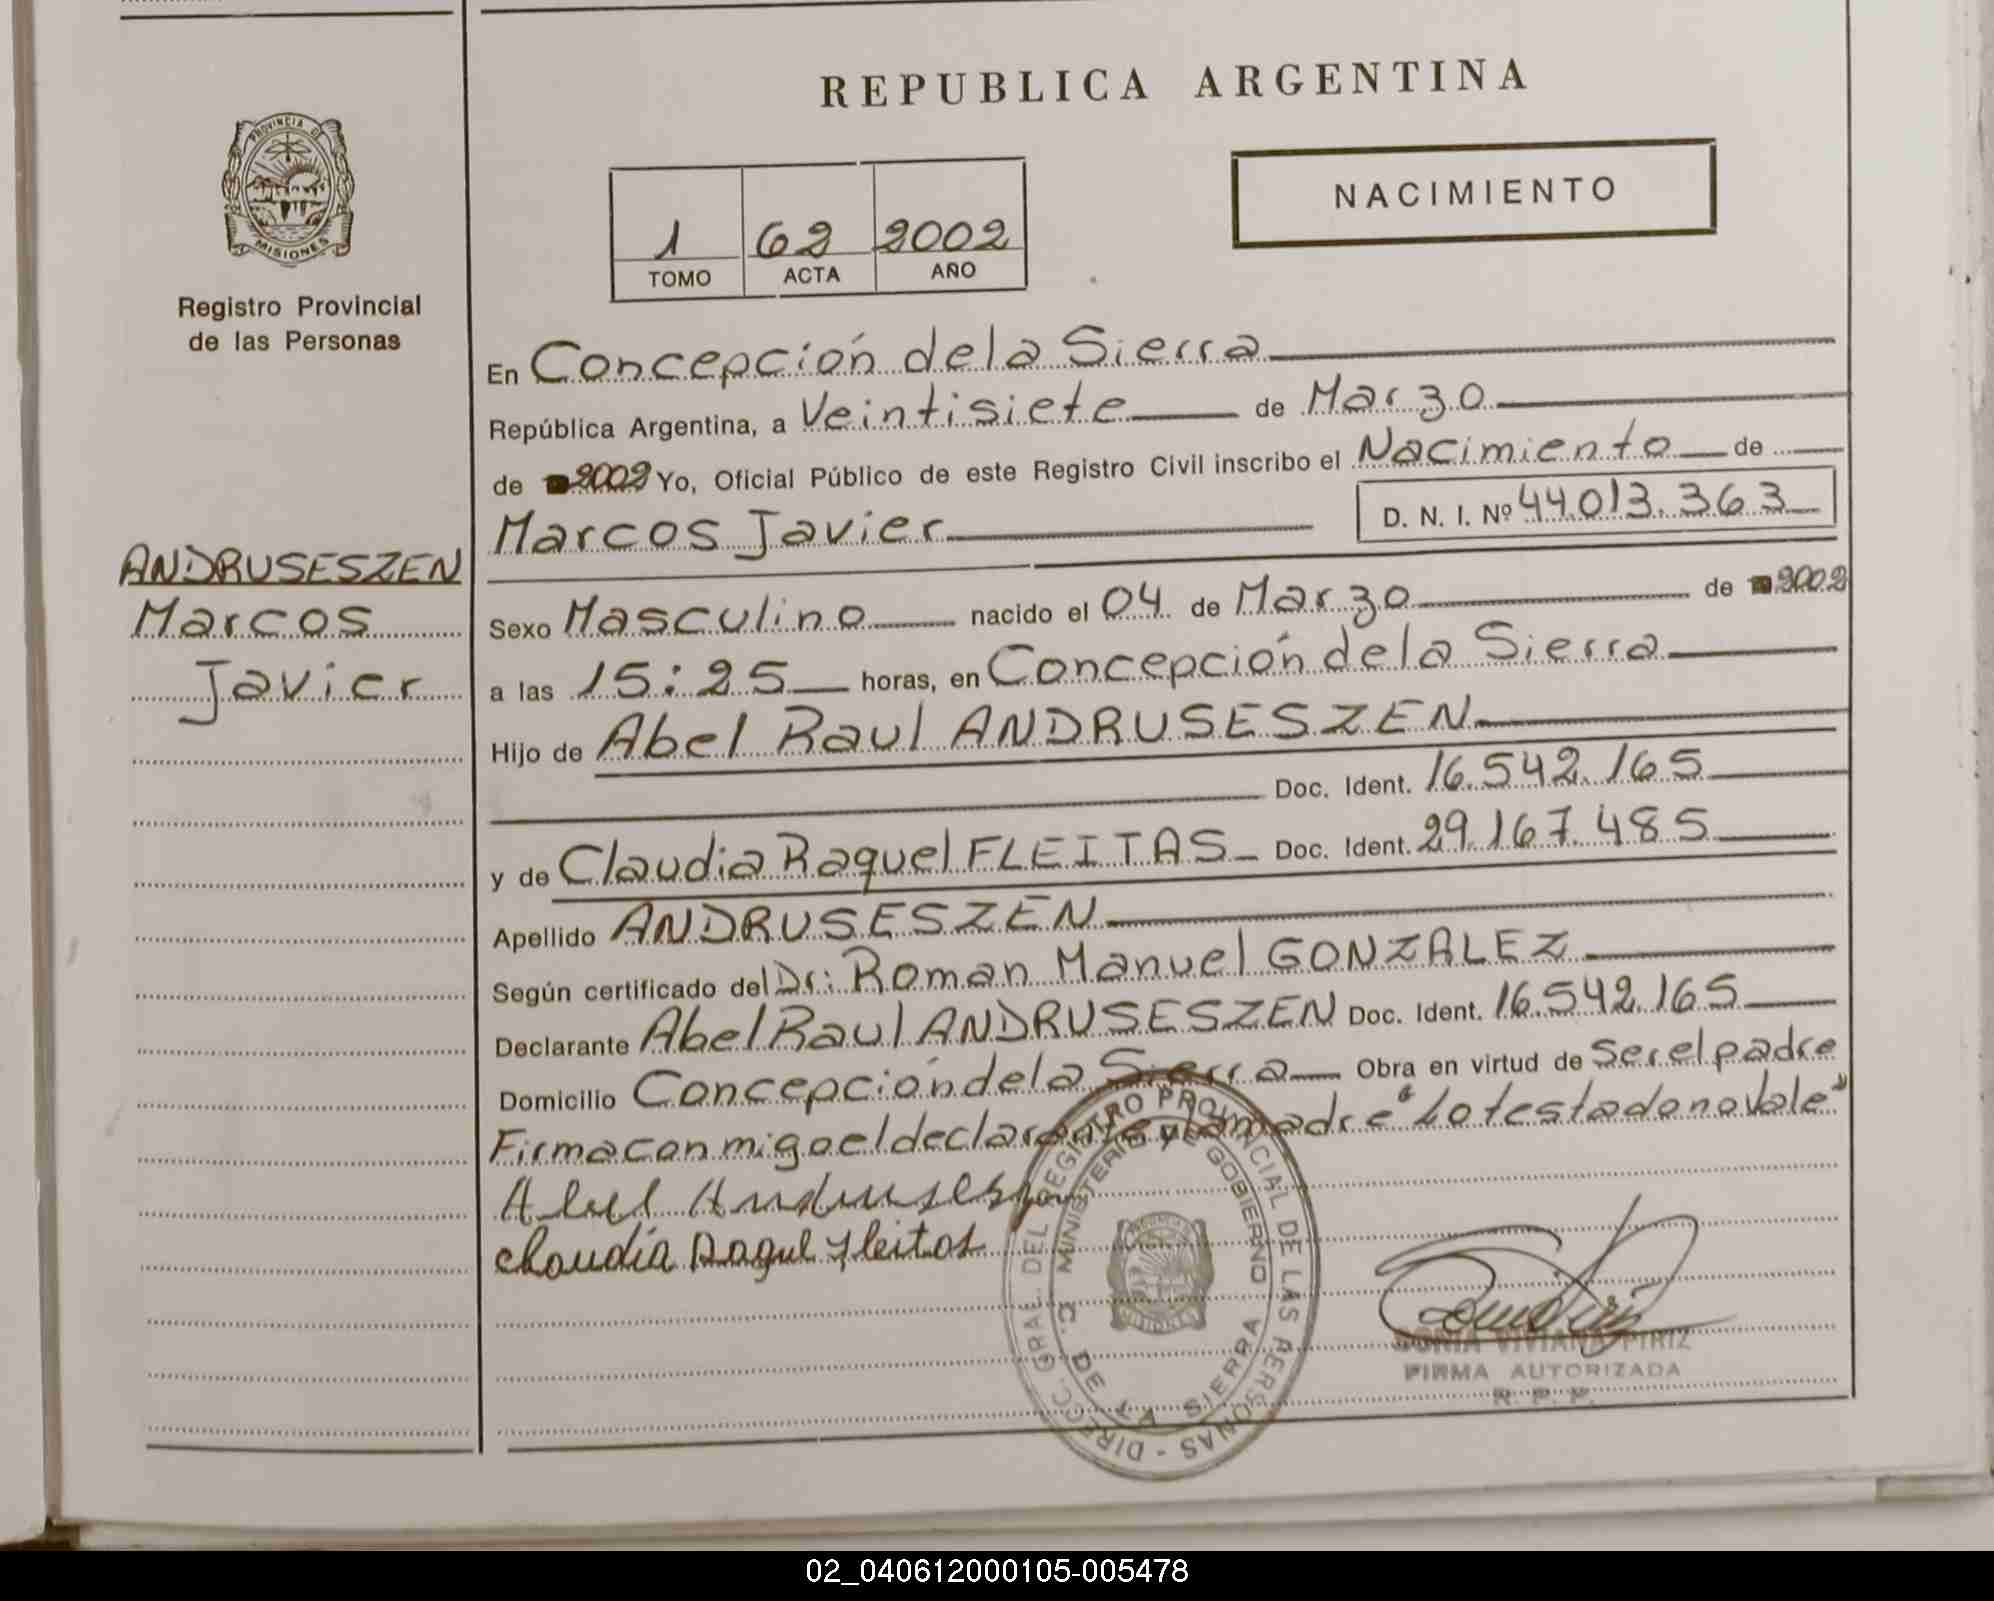 REPUBLICA ARGENTINA
PROVINCIA DE
MISIONES
Registro Provincial
de las Personas
NACIMIENTO
1 62 2002
TOMO ACTA AÑO
En Concepción de la Sierra
República Argentina, a Veintisiete de Marzo
de 2002 Yo, Oficial Público de este Registro Civil inscribo el Nacimiento de
Marcos Javier D. N. I. Nº 44.013.363
ANDRUSESZEN
Marcos
Javier
Sexo Masculino nacido el 04 de Marzo de 2002
a las 15:25 horas, en Concepción de la Sierra
Hijo de Abel Raul ANDRUSESZEN
Doc. Ident. 16.542.165
y de Claudia Raquel FLEITAS Doc. Ident. 29.167.485
Apellido ANDRUSESZEN
Según certificado del Dr: Roman Manuel GONZALEZ
Declarante Abel Raul ANDRUSESZEN Doc. Ident. 16.542.165
Domicilio Concepción de la Sierra Obra en virtud de Ser el padre
Firma con migo el declarante y la madre "Lo testado no Vale"
Abel Andruseszen
Claudia Raquel Fleitas
DIREC. GRAL. DEL REGISTRO PROVINCIAL DE LAS PERSONAS -
MINISTERIO DE GOBIERNO
C. DE LA SIERRA
SONIA VIVIANA PIRIZ
FIRMA AUTORIZADA
R. P. P.
02_040612000105-005478